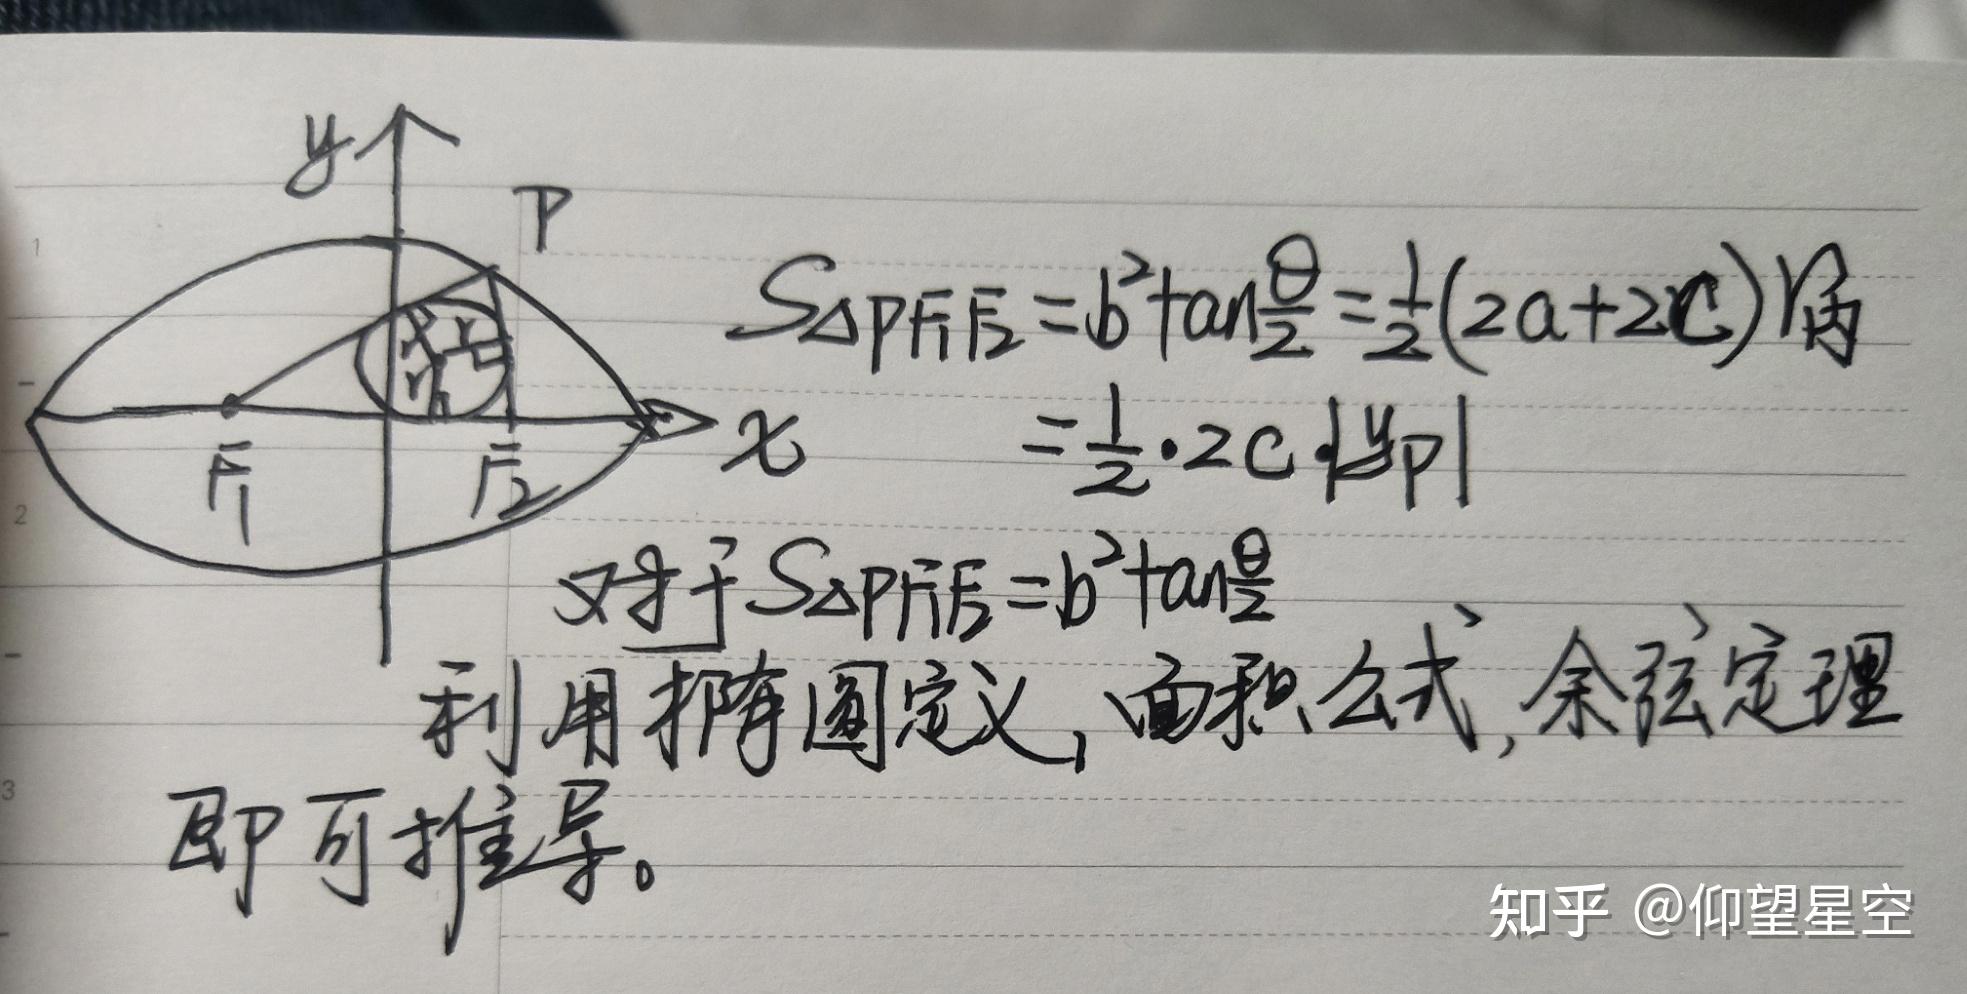 y
P
S△PF₁F₂=b²tanθ/2=1/2(2a+2c)r内
x
=1/2·2c·|yP|
F₁ F₂
对于S△PF₁F₂=b²tanθ/2
利用椭圆定义,面积公式,余弦定理
即可推导。
1
2
3
知乎 @仰望星空